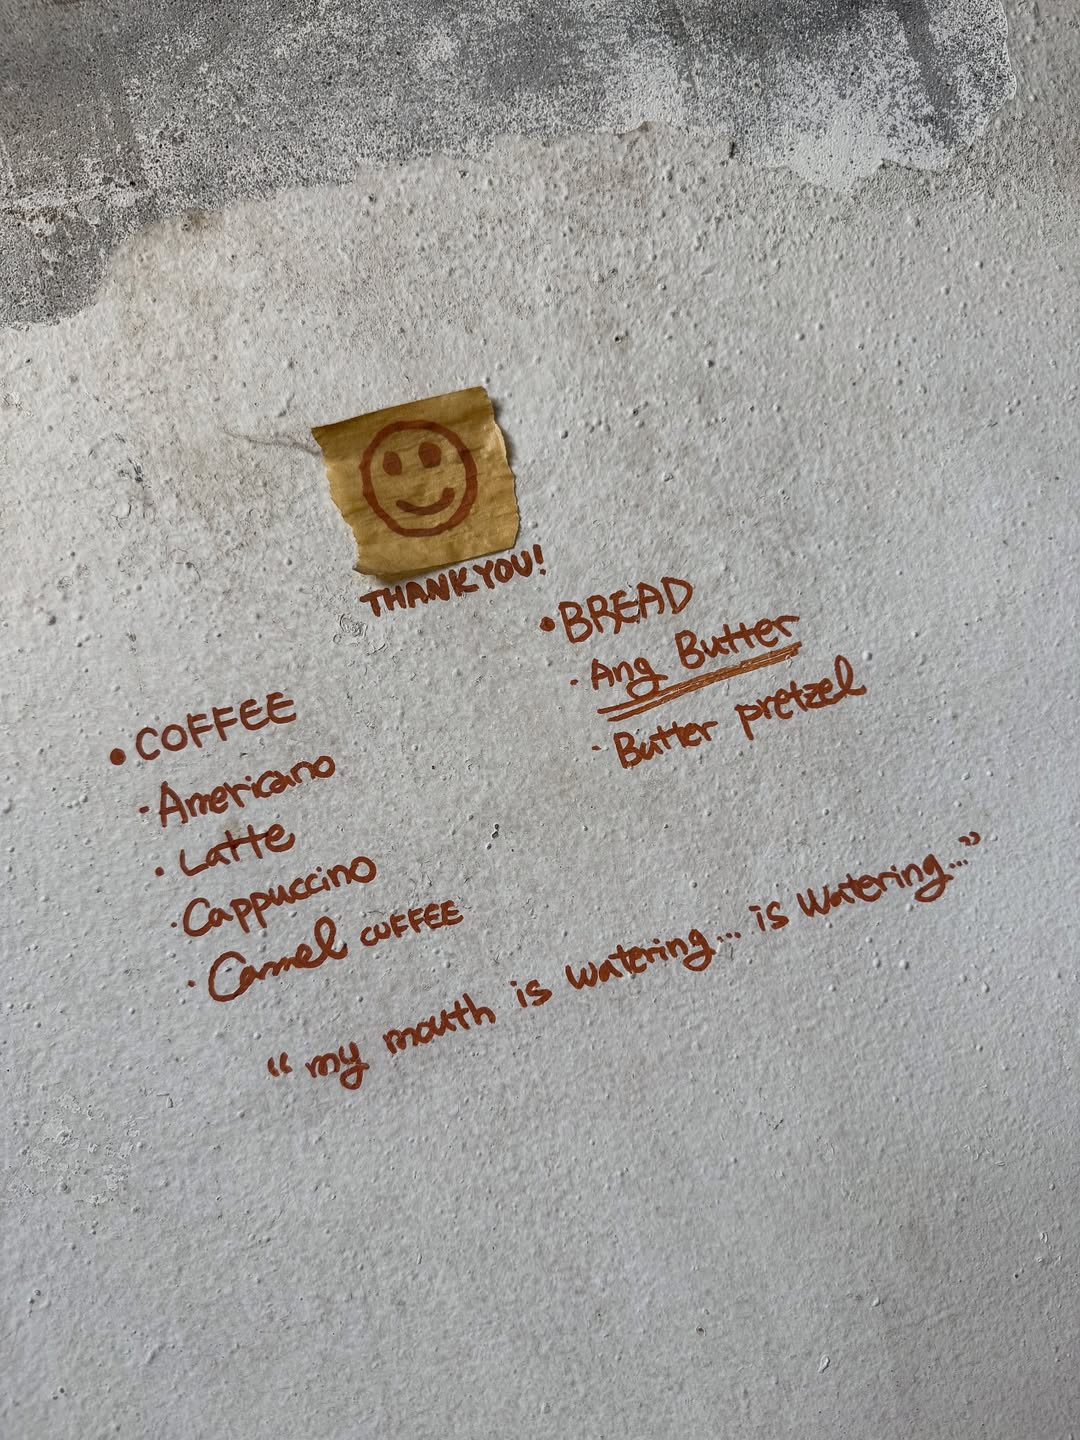 THANK YOU!
• COFFEE
· Americano
· Latte
· Cappuccino
· Carmel COFFEE
• BREAD
· Ang Butter
· Butter pretzel
“ my mouth is watering... is watering...”